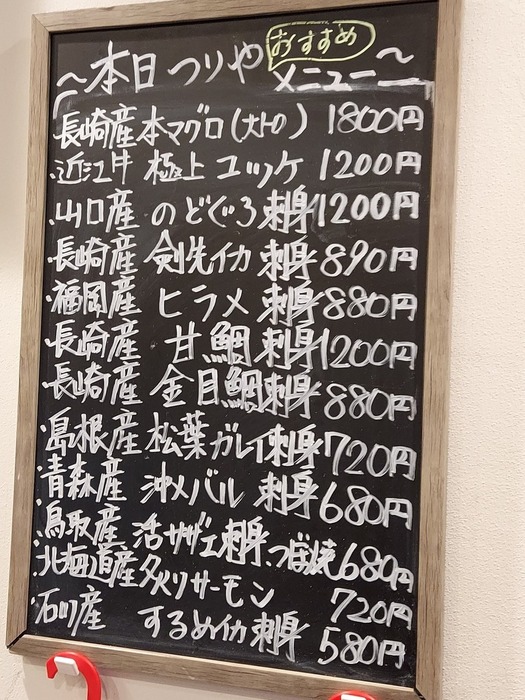 ～本日つりや おすすめ メニュー～
長崎産 本マグロ(大トロ) 1800円
・近江牛 極上ユッケ 1200円
・山口産 のどぐろ刺身 1200円
・長崎産 剣先イカ刺身 890円
・福岡産 ヒラメ刺身 880円
・長崎産 甘鯛刺身 1200円
・長崎産 金目鯛刺身 880円
・島根産 松葉ガレイ刺身 720円
・青森産 沖メバル刺身 680円
・鳥取産 活サザエ刺身、つぼ焼 680円
・北海道産 炙りサーモン 720円
・石川産 するめイカ刺身 580円